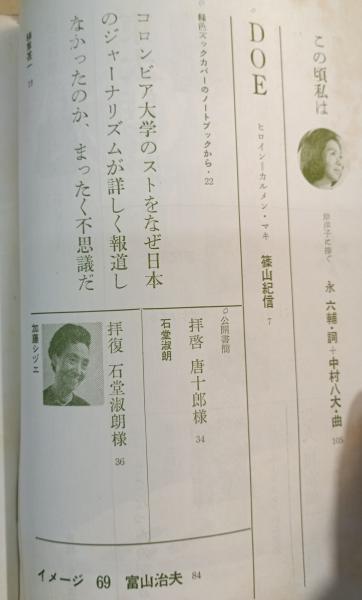 この頃私は
岸洋子に捧ぐ
永 六輔・詞＋中村八大・曲 105
DOE
ヒロイン=カルメン・マキ
篠山紀信 7
緑色ズックカバーのノートブックから・22
コロンビア大学のストをなぜ日本
のジャーナリズムが詳しく報道し
なかったのか、まったく不思議だ
植草甚一 19
公開書簡
拝啓 唐十郎様 34
石堂淑朗
拝復 石堂淑朗様 36
加藤シヅエ
イメージ 69 富山治夫 84